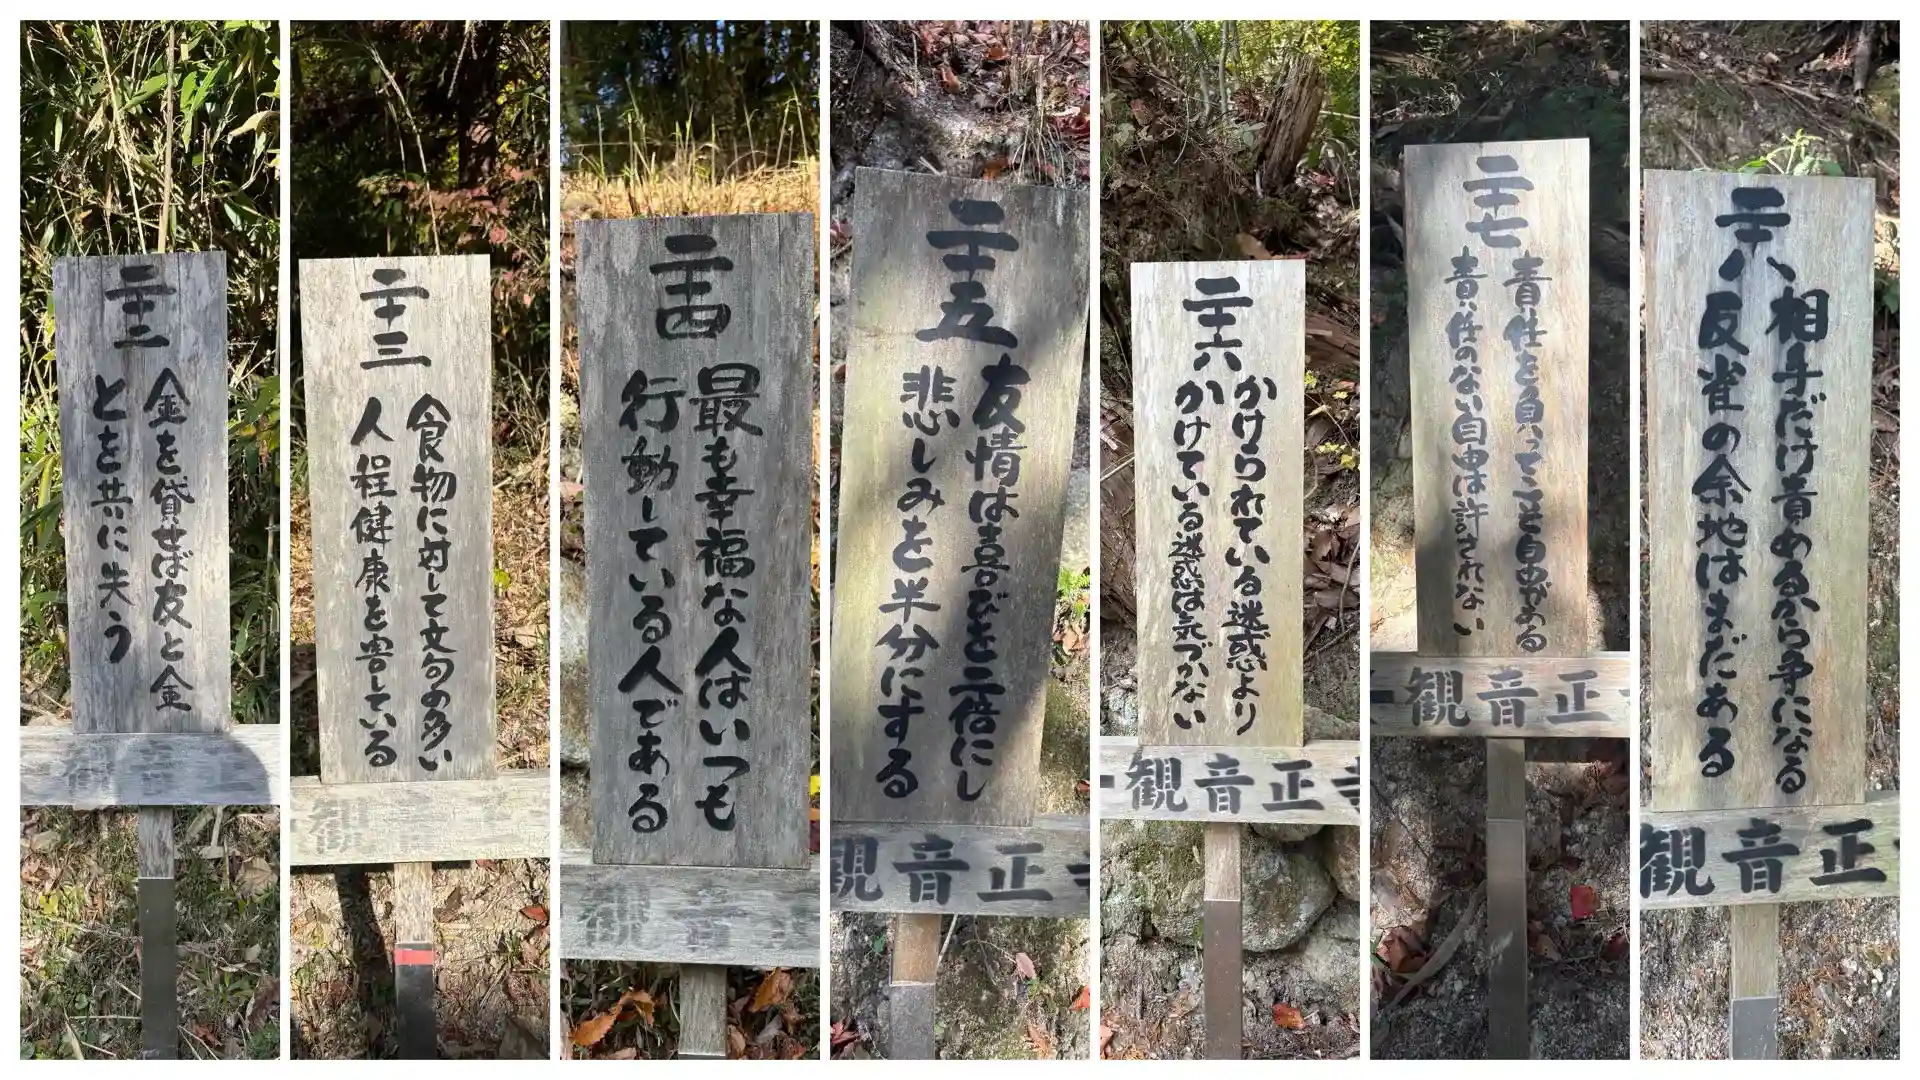 二十二
金を貸せば友と金
とを共に失う
二十三
食物に対して文句の多い
人程健康を害している
観
二十四
最も幸福な人はいつも
行動している人である
観音
二十五
友情は喜びを二倍にし
悲しみを半分にする
観音正寺
二十六
かけられている迷惑より
かけている迷惑は気づかない
観音正寺
二十七
責任を負ってこそ自由がある
責任のない自由は許されない
観音正寺
二十八
相手だけ責めるから争になる
反省の余地はまだある
観音正